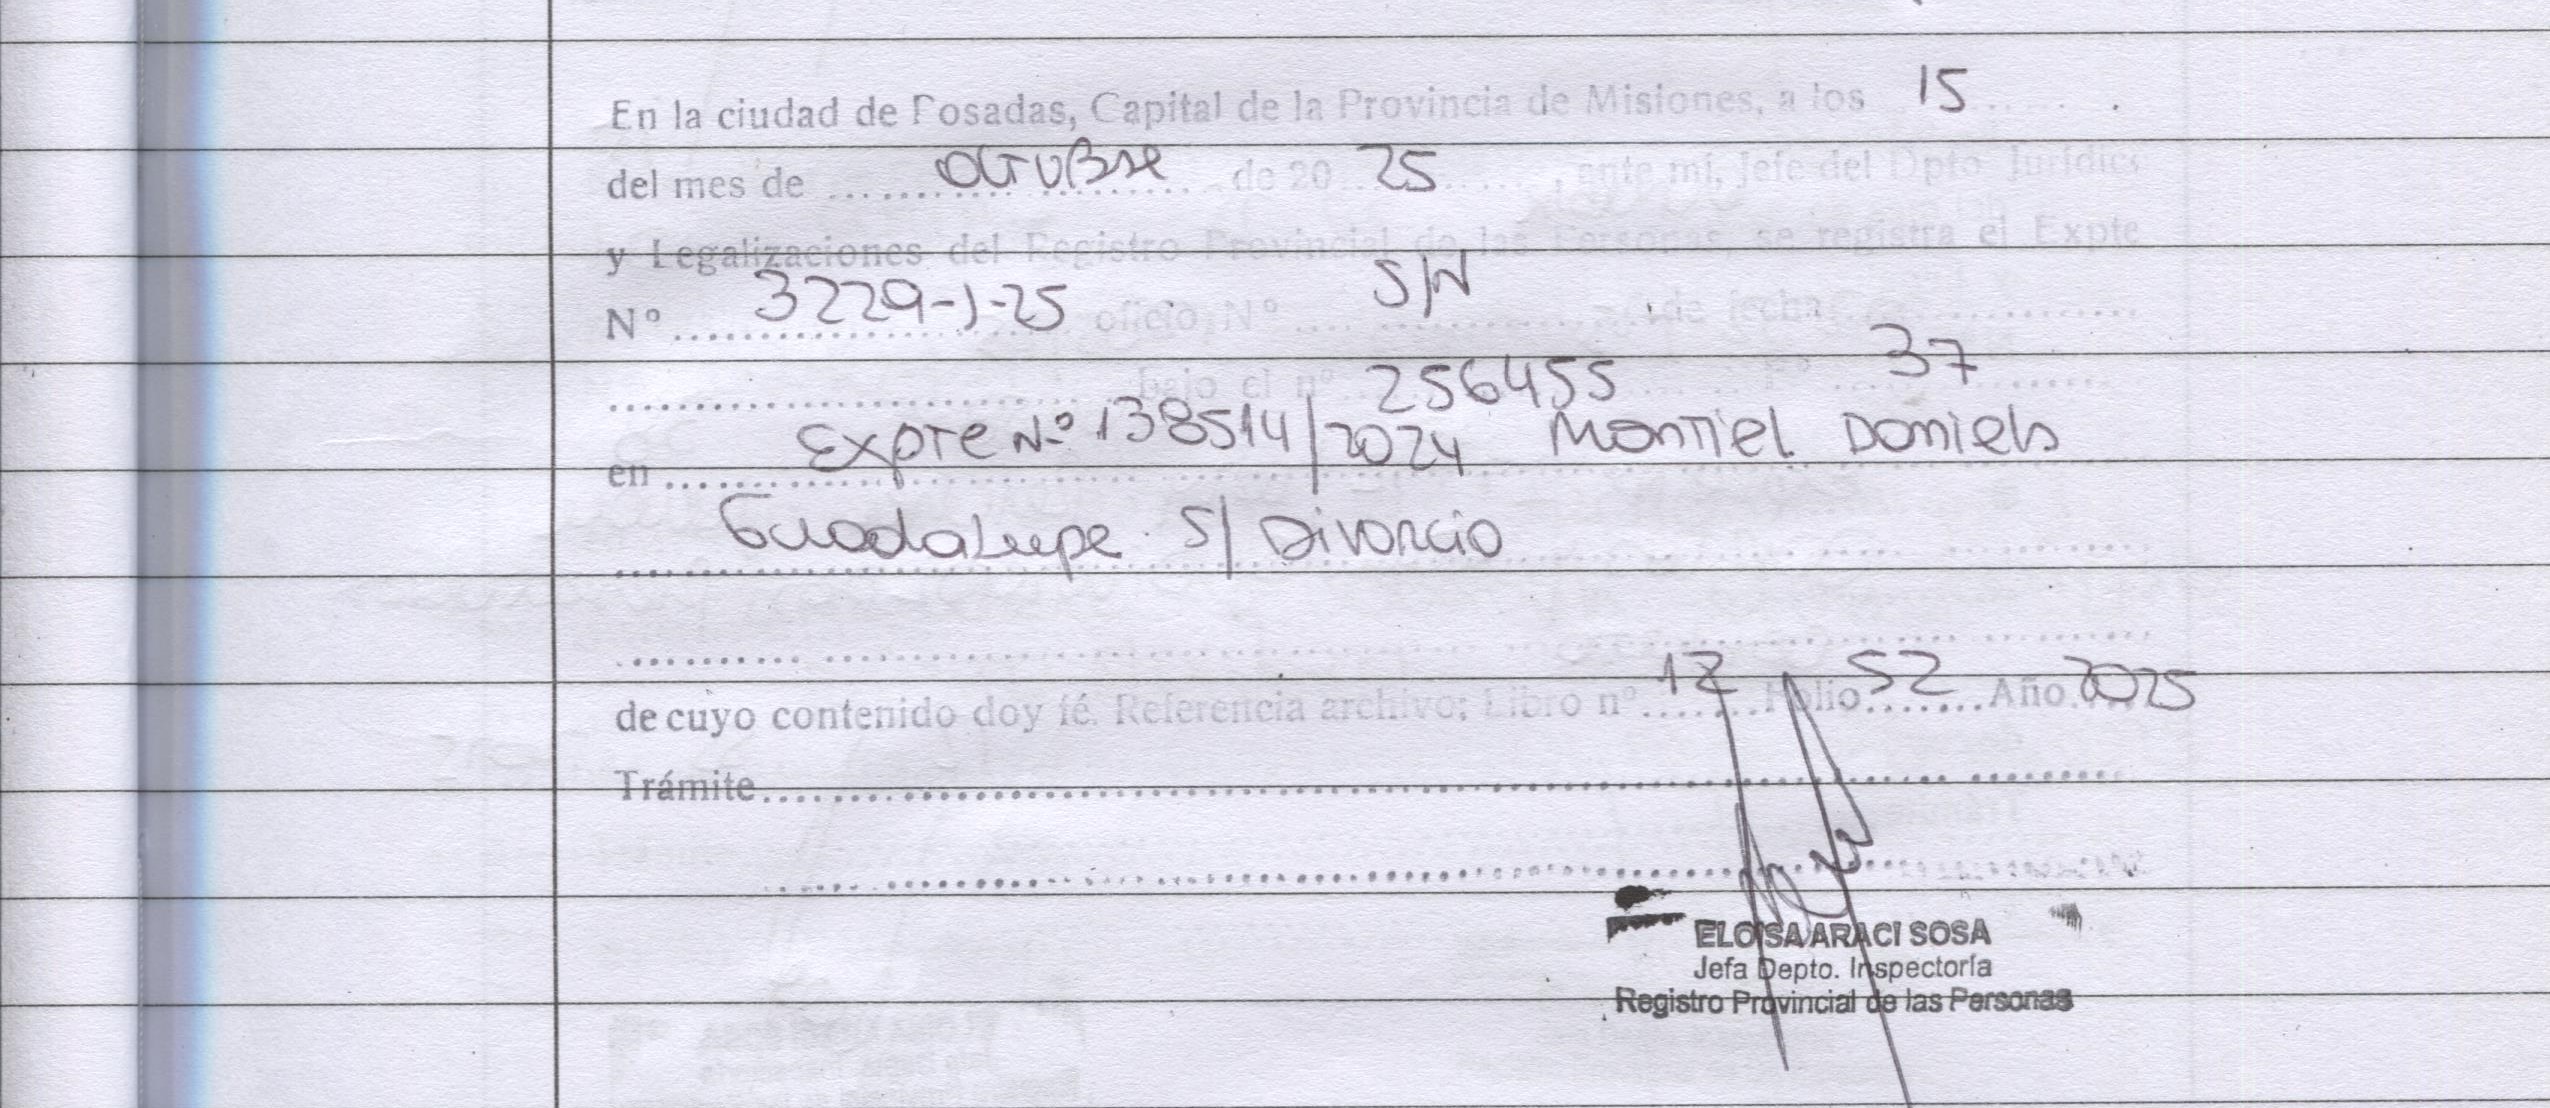 En la ciudad de Posadas, Capital de la Provincia de Misiones, a los 15
del mes de octubre de 20 25, ante mí, Jefe del Dpto Jurídico
y Legalizaciones del Registro Provincial de las Personas, se registra el Expte
N° 3229-J-25 oficio N° S/N de fecha
bajo el n° 256455 F° 37
en Expte N° 138514/2024 Montiel Daniela
Guadalupe S/ Divorcio
de cuyo contenido doy fé. Referencia archivo: Libro n° 12 Folio 52 Año 2025
Trámite
ELOISA ARACI SOSA
Jefa Depto. Inspectoría
Registro Provincial de las Personas